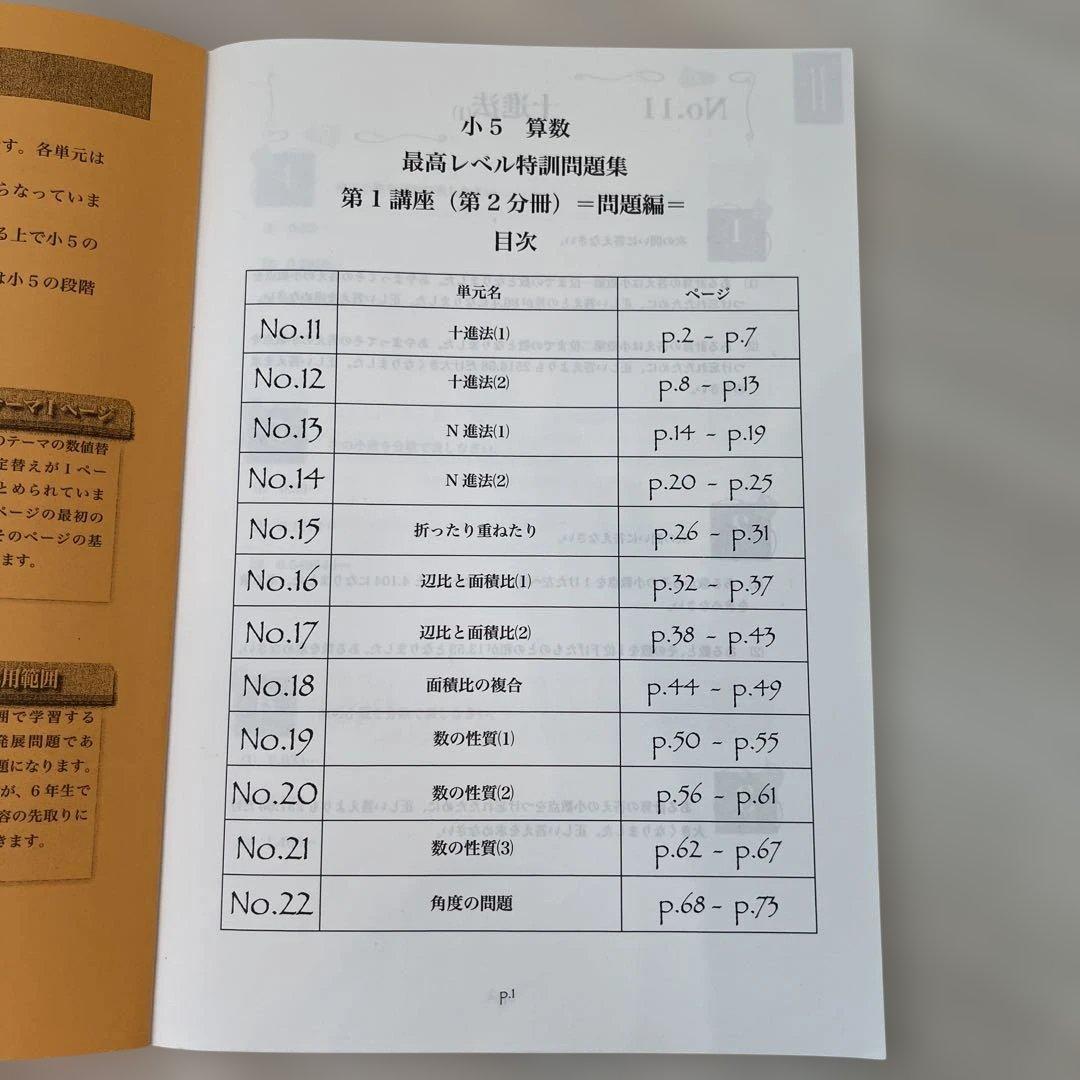 す。各単元は
らなっていま
る上で小５の
は小５の段階
テーマ１ページ
のテーマの数値替
定替えが１ペー
とめられていま
ページの最初の
そのページの基
ます。
用範囲
囲で学習する
発展問題であ
題になります。
が、６年生で
容の先取りに
きます。
小５　算数
最高レベル特訓問題集
第１講座（第２分冊）＝問題編＝
目次
単元名 ページ
No.11 十進法(1) p.2 - p.7
No.12 十進法(2) p.8 - p.13
No.13 N進法(1) p.14 - p.19
No.14 N進法(2) p.20 - p.25
No.15 折ったり重ねたり p.26 - p.31
No.16 辺比と面積比(1) p.32 - p.37
No.17 辺比と面積比(2) p.38 - p.43
No.18 面積比の複合 p.44 - p.49
No.19 数の性質(1) p.50 - p.55
No.20 数の性質(2) p.56 - p.61
No.21 数の性質(3) p.62 - p.67
No.22 角度の問題 p.68 - p.73
p.1